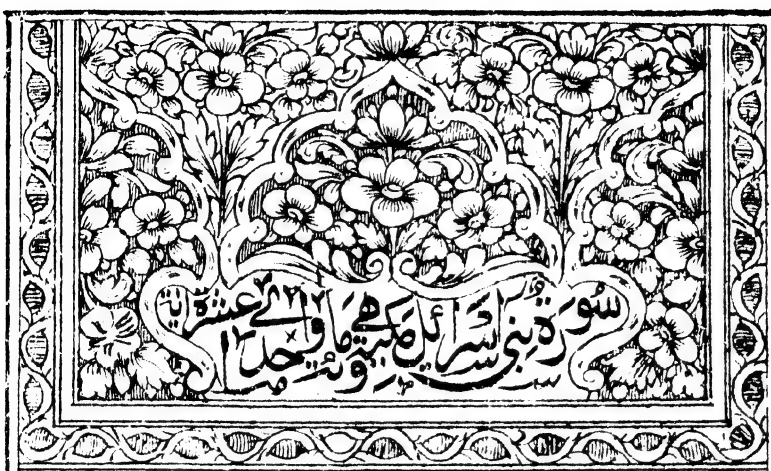 سُورَةُ بَنِي اِسْرَائِيلَ مَكِّيَّةٌ وَهِيَ مِائَةٌ وَاِحْدٰى عَشْرَةَ اٰيَة